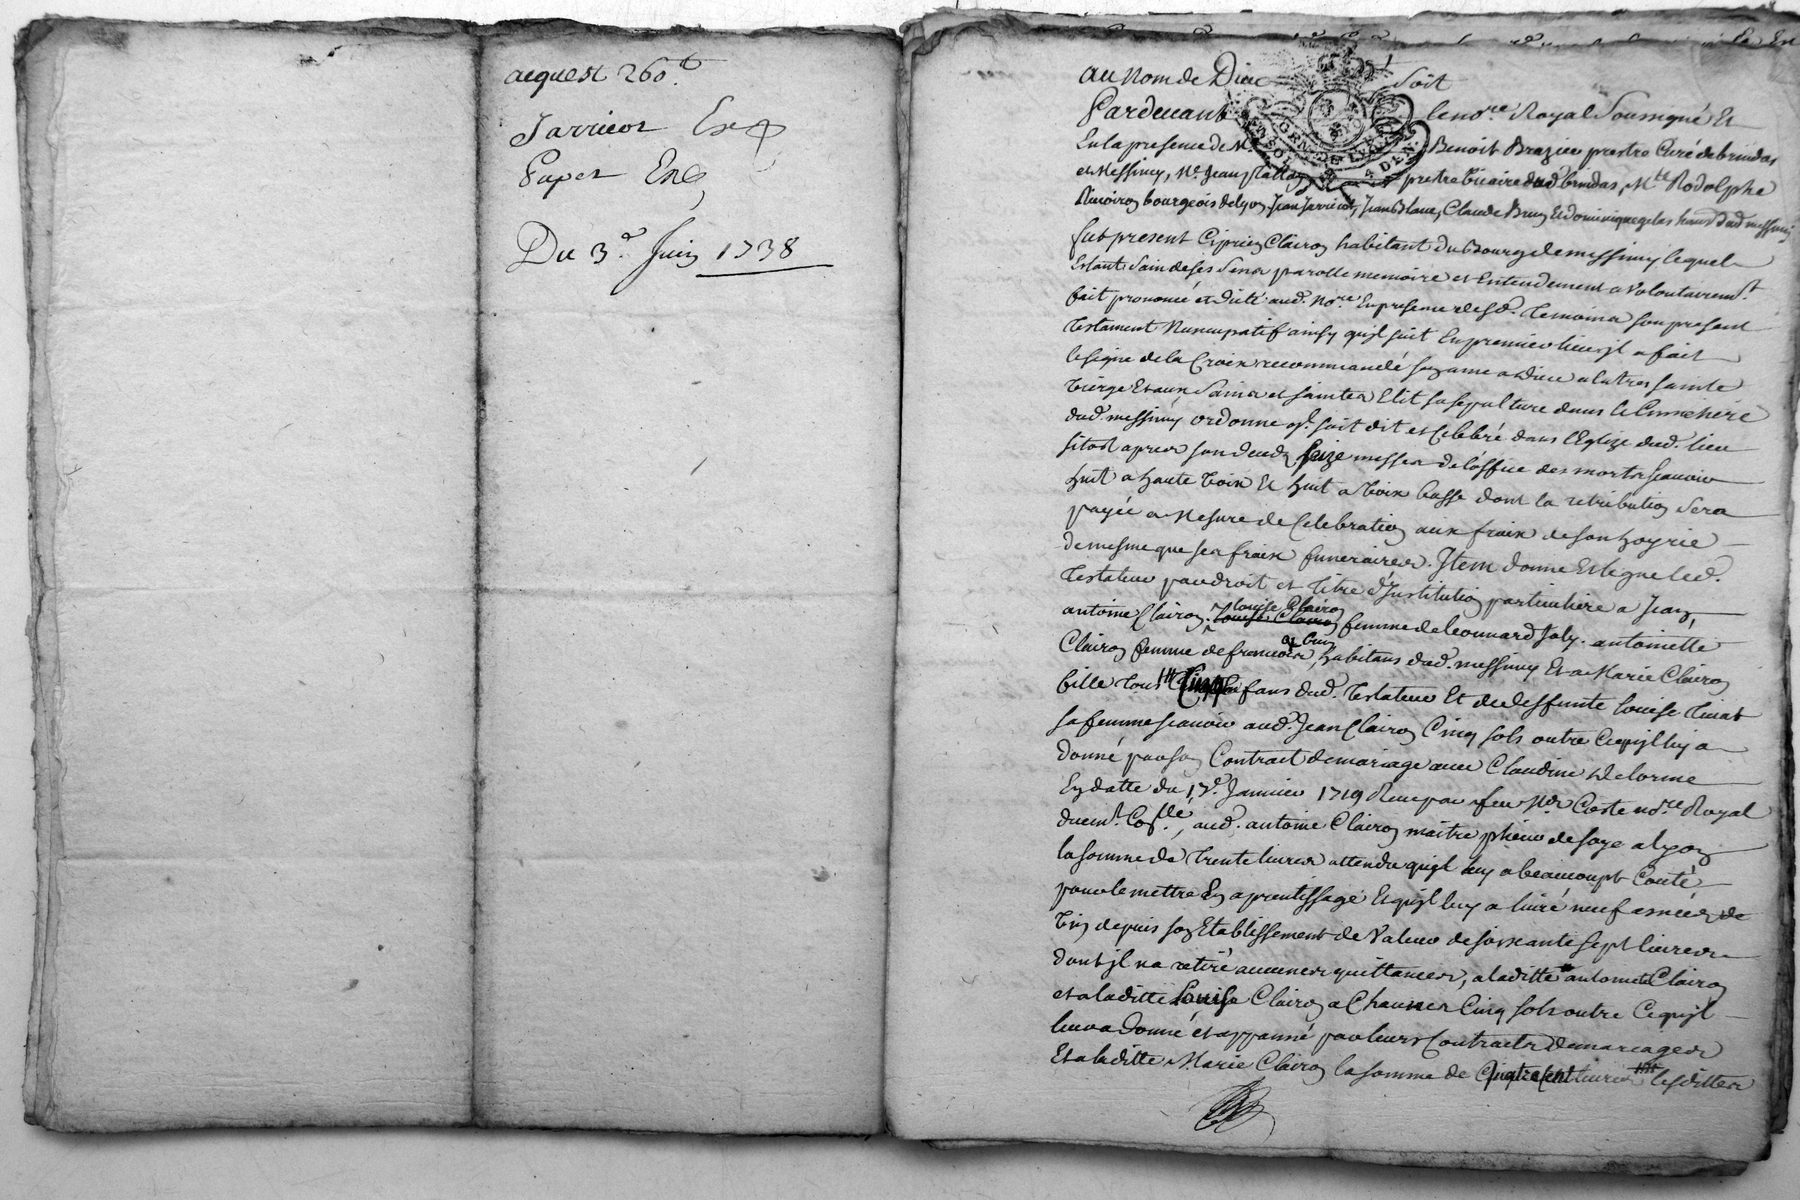 acquest 260.tt
Jarricot Exp
Papet Exp
Du 3.e Juin 1738
au Nom de Dieu Soit
Pardevant le no.re Royal Soussigné Et
En la presence de M. Benoit Brazier prestre Curé de brindas
et Messimy, M.e Jean prestre vicaire dud. brindas, M.re Rodolphe
bourgeois de lyon, Jean Jarricot, Jean Blanc, Claude Brun Et dominique gelas hans dud. messimy
fut present Ciprien Clairon habitant du Bourg de messimy lequel
Estant Sain de ses Sens parolle memoire et Entendement a Volontairem.t
fait prononcé et dicté aud. No.re En presence desd. temoins son present
testament Nuncupatif ainsy quil suit En premier lieu jl a fait
le signe de la Croix recommandé son ame a Dieu a la tres sainte
vierge Et aux Saints et saintes Elit sa sepulture dans le Cimetiere
dud. messimy ordonne q.l soit dit et Celebré dans l'Eglize dud. lieu
sitost apres son deceds seize messes de l'office des morts scavoir
huit a haute voix Et huit a voix basse dont la retribution sera
payée a Mesure de Celebration aux fraix de son hoyrie
de mesme que ses fraix funeraires. Jtem donne Et legue led.
testateur par droit et titre d'Institution particuliere a Jean,
antoine Clairon, louise Clairon femme de leonnard Joly, antoinette
Clairon femme de francois brun habitans dud. messimy Et a Marie Clairon
fille tous Cinq Enfans dud. testateur Et de deffunte louise
sa femme scavoir aud. Jean Clairon Cinq sols outre Ce quil luy a
donné par son Contract de mariage avec Claudine Delorme
En datte du 17.e Janvier 1719 Receu par feu M.e Coste no.re Royal
aud. antoine Clairon maitre de soye a lyon
la somme de trente livres attendu quil luy a beaucoupt Couté
pour le mettre En aprentissage Et quil luy a livré neuf asnées de
vin depuis son Etablissement de Valeur de soixante sept livres
dont jl n'a retiré aucunes quittances, a laditte antoinette Clairon
et a laditte Louise Clairon a Chacunes Cinq sols outre Ce quil
leur a donné et appanné par leurs Contracts de mariages
Et a laditte Marie Clairon la somme de quatre Cent livres lesdittes